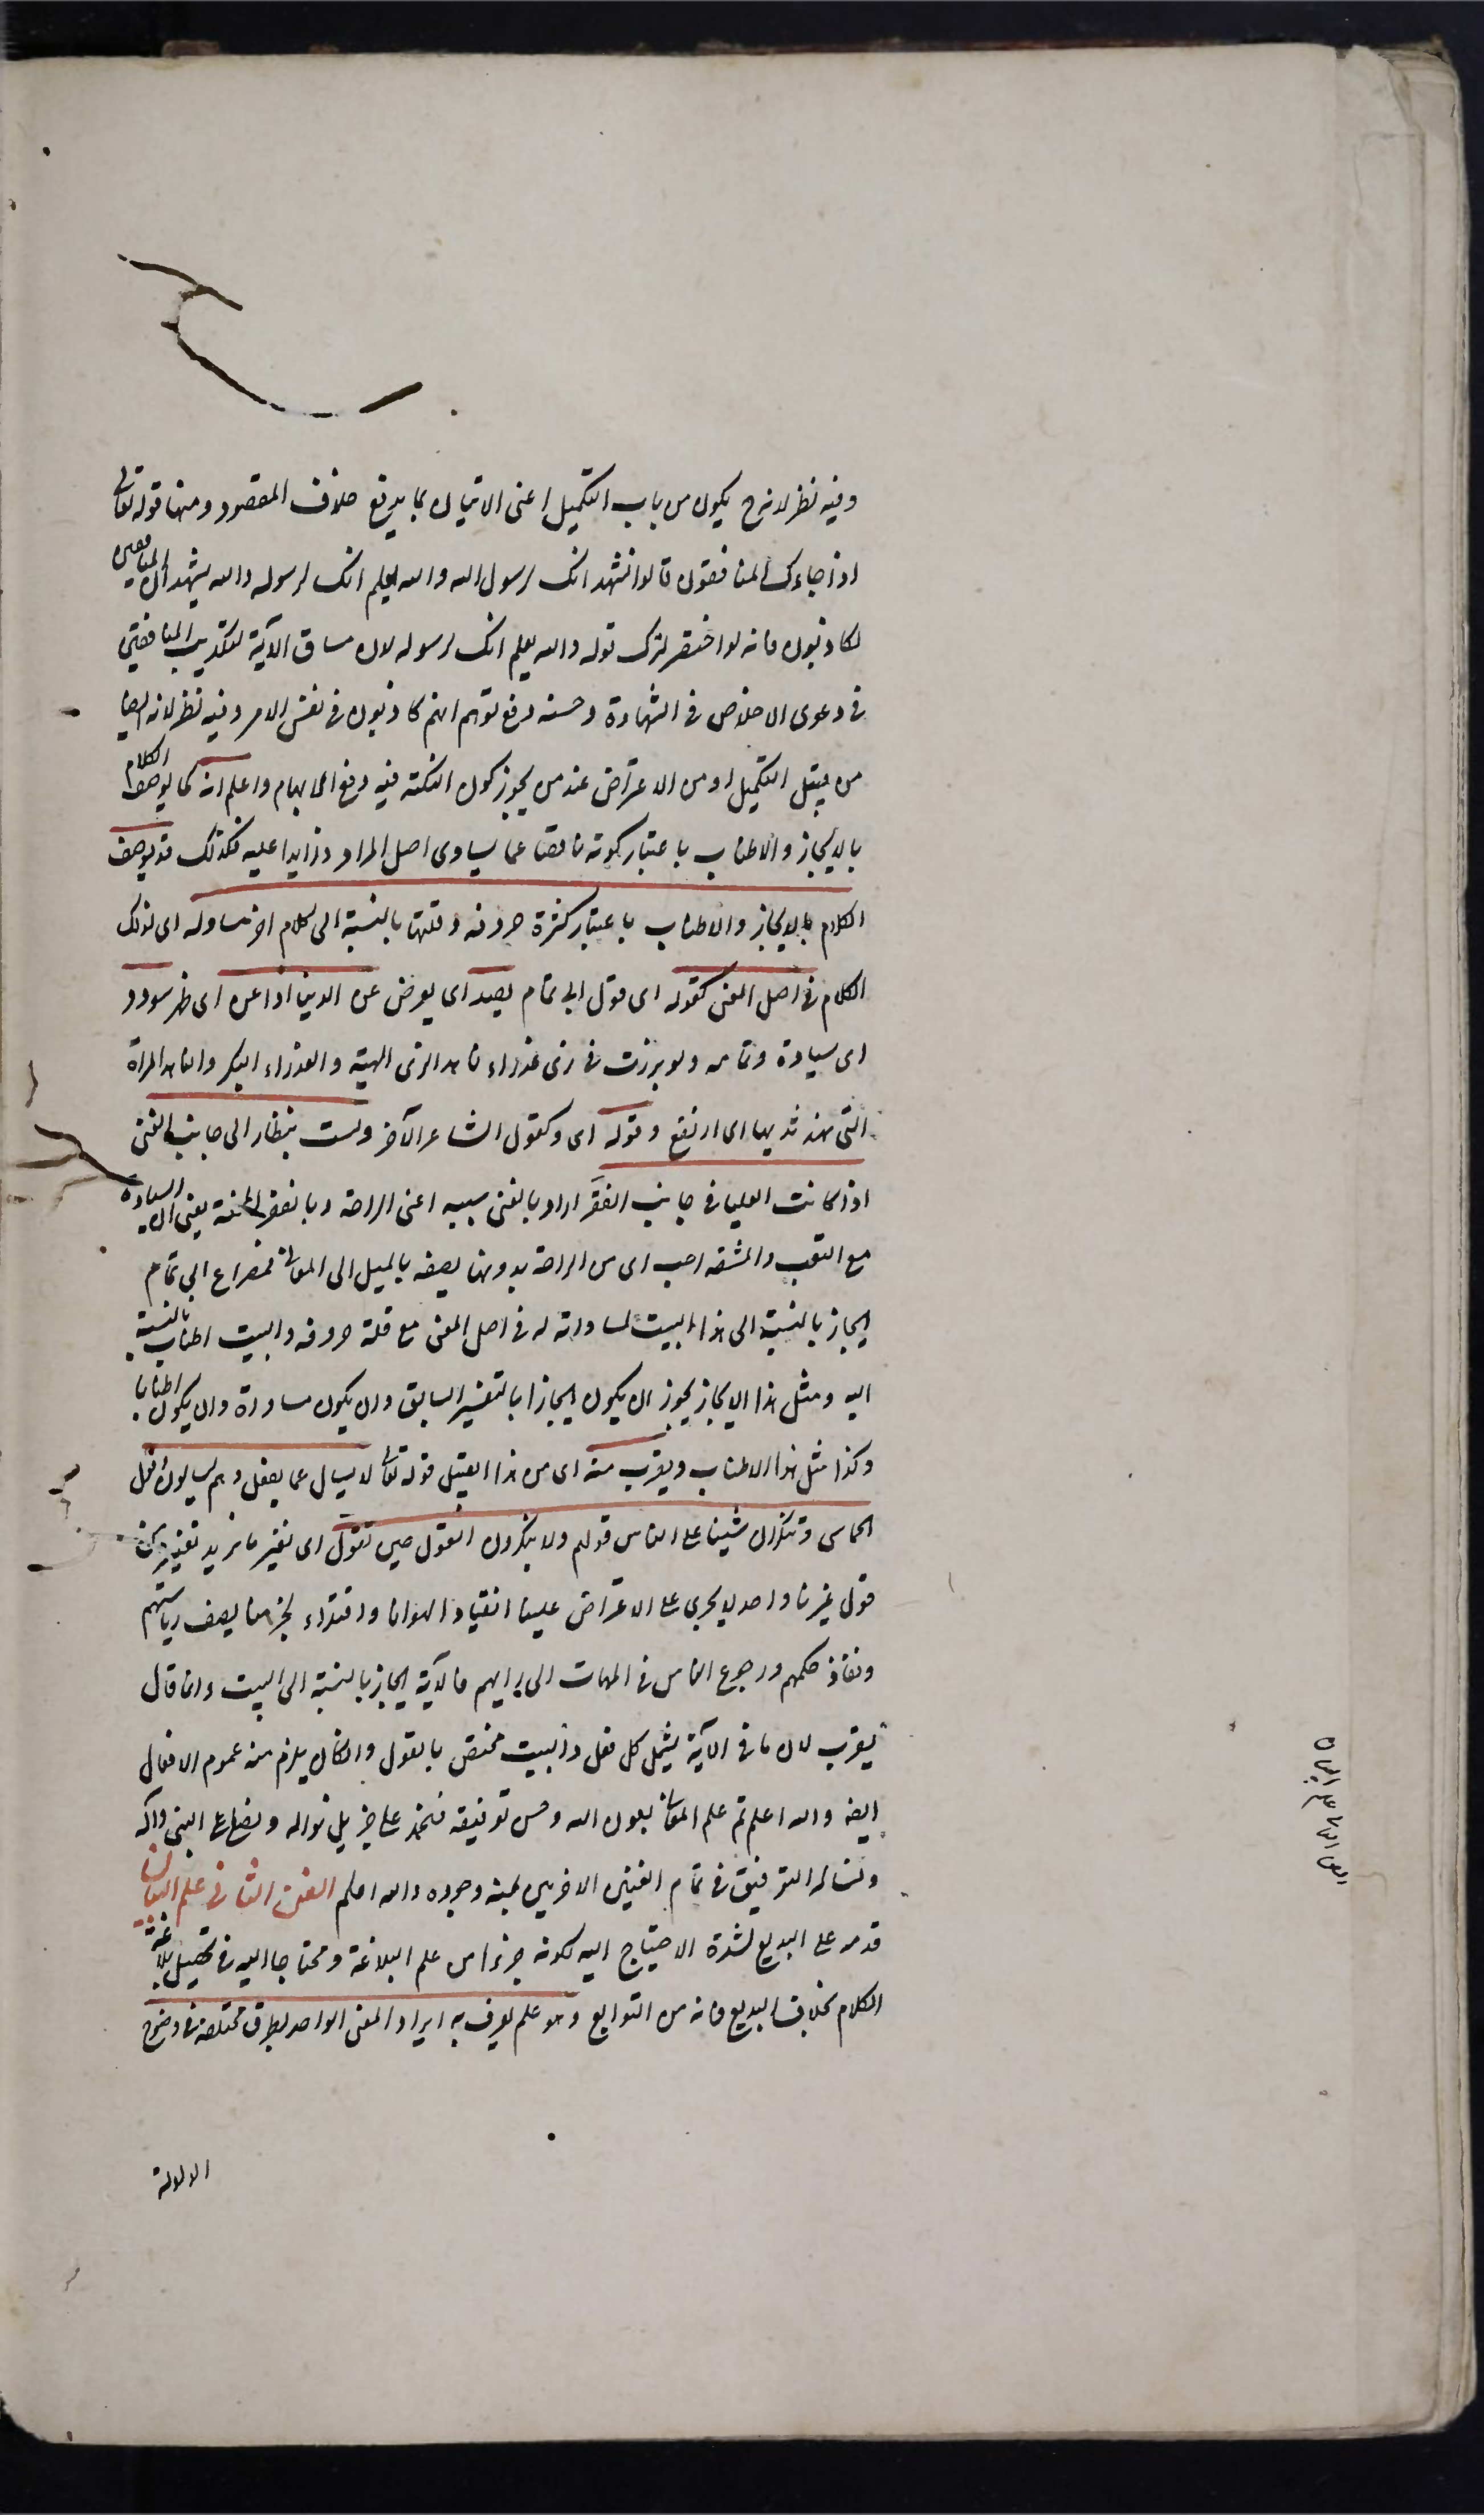 وفيه نظر لانه ح يكون من باب التكميل اعنى الاتيان بما يدفع خلاف المقصود ومنها قوله تعالى
اذا جاءك المنافقون قالوا نشهد انك لرسول الله والله يعلم انك لرسوله والله يشهد ان المنافقين
لكاذبون فانه لو اختصر لترك قوله والله يعلم انك لرسوله لان مساق الآية لتكذيب المنافقين
فى دعوى الاخلاص فى الشهادة وحسنه دفع توهم انهم كاذبون فى نفس الامر وفيه نظر لانه ايضا
من قبيل التكميل او من الاعتراض عند من يجوز كون النكتة فيه دفع الايهام واعلم انه كما يوصف الكلام
بالايجاز والاطناب باعتبار كونه ناقصا عما يساوى اصل المراد وزايدا عليه فكذلك قد يوصف
الكلام بالايجاز والاطناب باعتبار كثرة حروفه وقلتها بالنسبة الى كلام اخر مساو له اى لذلك
الكلام فى اصل المعنى كقوله اى قول ابى تمام يصد اى يعرض عن الدنيا اذا عن اى ظهر سودد
اى سيادة وتمامه ولو برزت فى زى عذراء ناهد الزى الهيئة والعذراء البكر والناهد المراة
التى نهد ثديها اى ارتفع وقوله اى وكقول الشاعر الآخر ولست بنظار الى جانب الغنى
اذا كانت العليا فى جانب الفقر اراد بالغنى سببه اعنى الراحة وبالفقر المحنة يعنى ان السيادة
مع التعب والمشقه احب اى من الراحة بدونها يصفه بالميل الى المعالى فمصراع ابى تمام
ايجاز بالنسبة الى هذا البيت لمساواته له فى اصل المعنى مع قلة حروفه والبيت اطناب بالنسبة
اليه ومثل هذا الايجاز يجوز ان يكون ايجازا بالتفسير السابق وان يكون مساواة وان يكون اطنابا
وكذا مثل هذا الاطناب ويقرب منه اى من هذا القبيل قوله تعالى لا يسال عما يفعل وهم يسالون وقول
الحماسى وتنكر ان شينا على الناس قولهم ولا ينكرون القول حين نقول اى نغير ما نريد تغييره من
قول غيرنا واحد لا يجرى على الاعتراض علينا انقيادا لهوانا واقتداء بحزمنا يصف رياستهم
ونفاذ حكمهم ورجوع الناس فى المهمات الى رايهم فالآية ايجاز بالنسبة الى البيت وانما قال
يقرب لان ما فى الآية يشمل كل فعل والبيت مختص بالقول وان كان يلزم منه عموم الافعال
ايضا والله اعلم تم علم المعانى بعون الله وحسن توفيقه فنحمد على جزيل نواله ونصلى على النبى وآله
ونساله التوفيق فى تمام الفنين الاخرين بمنه وجوده والله اعلم الفن الثانى فى علم البيان
قدمه على البديع لشدة الاحتياج اليه لكونه جزءا من علم البلاغة ومحتاجا اليه فى تحصيل بلاغة
الكلام بخلاف البديع فانه من التوابع وهو علم يعرف به ايراد المعنى الواحد بطرق مختلفة فى وضوح
الدلالة